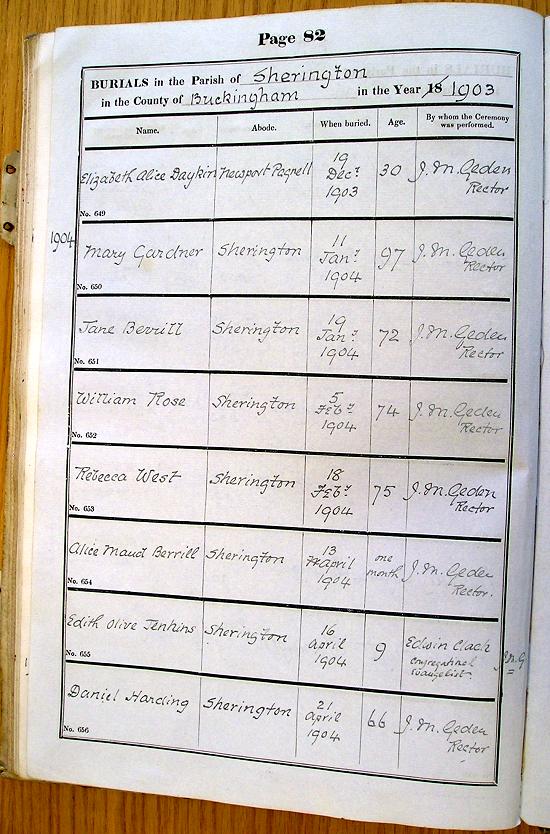 Page 82
BURIALS in the Parish of Sherington
in the County of Buckingham in the Year 18 1903
Name. Abode. When buried. Age. By whom the Ceremony was performed.
Elizabeth Alice Daykin Newport Pagnell 19 Decr 1903 30 J. M. Geden Rector
No. 649
1904
Mary Gardner Sherington 11 Jany 1904 97 J. M. Geden Rector
No. 650
Jane Berrill Sherington 19 Jany 1904 72 J. M. Geden Rector
No. 651
William Rose Sherington 5 Feby 1904 74 J. M. Geden Rector
No. 652
Rebecca West Sherington 18 Feby 1904 75 J. M. Geden Rector
No. 653
Alice Maud Berrill Sherington 13 April 1904 one month J. M. Geden Rector.
No. 654
Edith Olive Jenkins Sherington 16 April 1904 9 Edwin Congregational Evangelist J.M.G
No. 655
Daniel Harding Sherington 21 April 1904 66 J. M. Geden Rector
No. 656